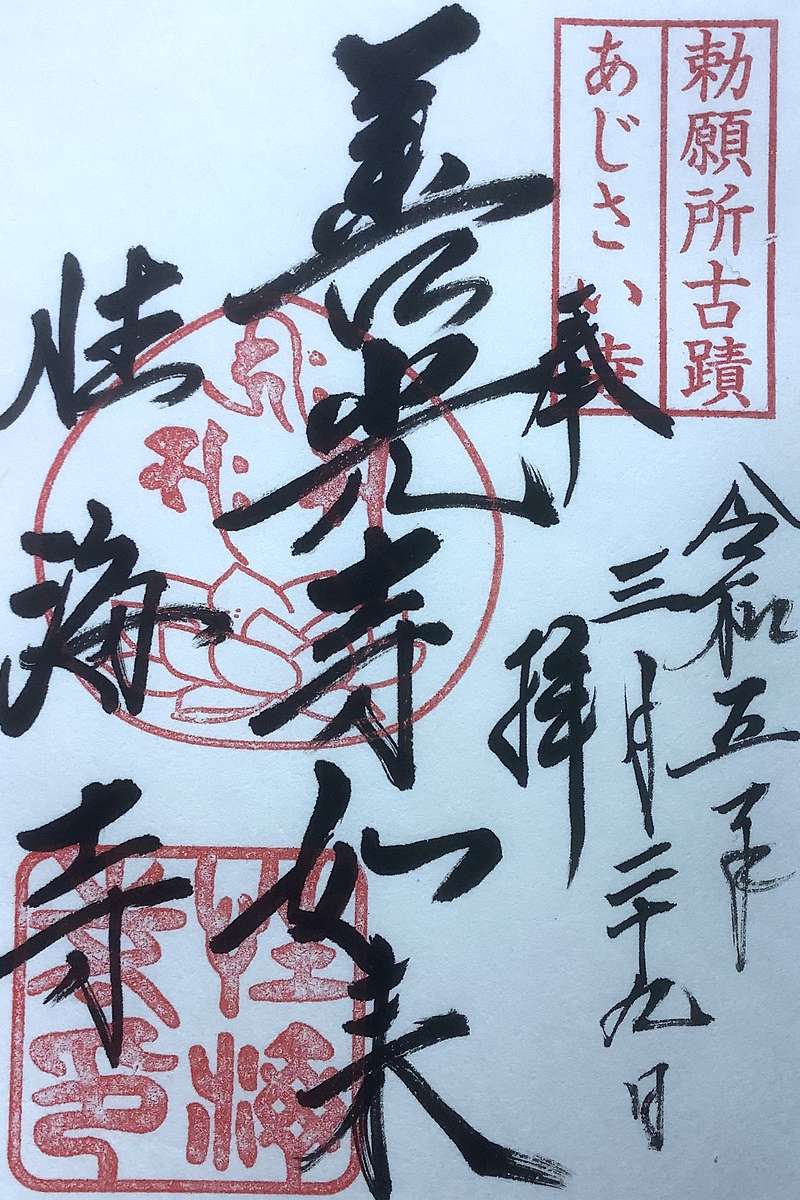 勅願所古蹟
あじさい寺
令和五年
三月二十九日
奉拝
善光寺如来
性海寺
性海
寺印